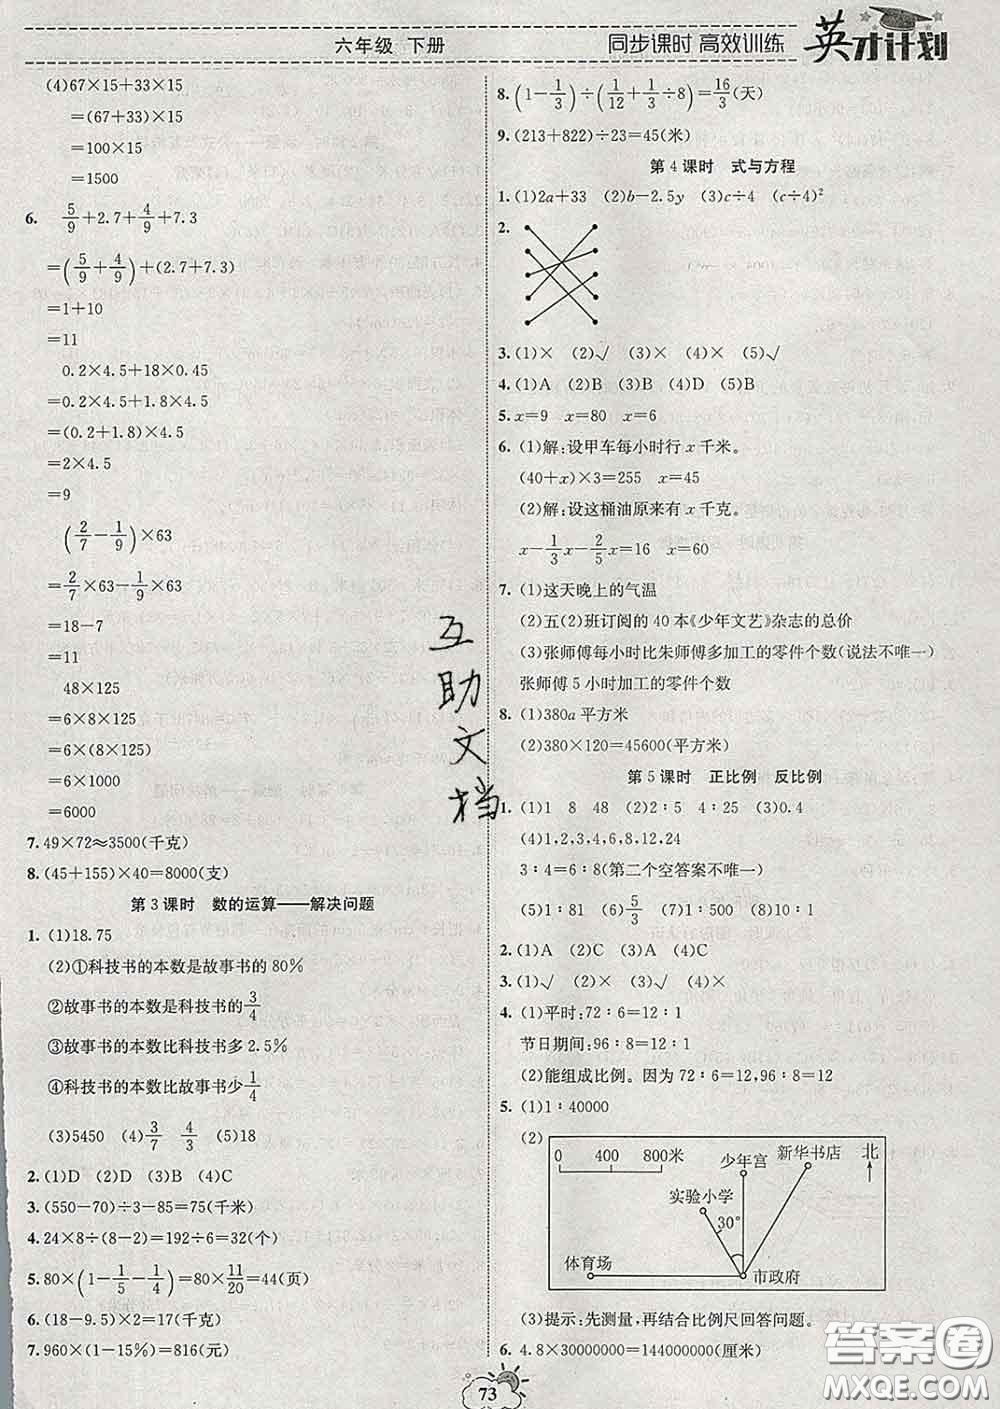 六年级 下册
同步课时 高效训练
英才计划
(4)67×15+33×15
=(67+33)×15
=100×15
=1500
6. 5/9+2.7+4/9+7.3
=(5/9+4/9)+(2.7+7.3)
=1+10
=11
0.2×4.5+18×0.45
=0.2×4.5+1.8×4.5
=(0.2+1.8)×4.5
=2×4.5
=9
(2/7-1/9)×63
=2/7×63-1/9×63
=18-7
=11
48×125
=6×8×125
=6×(8×125)
=6×1000
=6000
7. 49×72≈3500(千克)
8. (45+155)×40=8000(支)
第3课时 数的运算——解决问题
1. (1)18.75
(2)①科技书的本数是故事书的80%
②故事书的本数是科技书的3/4
③故事书的本数比科技书多2.5%
④科技书的本数比故事书少1/4
(3)5450 (4)3/7 4/3 (5)18
2. (1)D (2)D (3)B (4)C
3. (550-70)÷3-85=75(千米)
4. 24×8÷(8-2)=192÷6=32(个)
5. 80×(1-1/5-1/4)=80×11/20=44(页)
6. (18-9.5)×2=17(千克)
7. 960×(1-15%)=816(元)
8. (1-1/3)÷(1/12+1/3÷8)=16/3(天)
9. (213+822)÷23=45(米)
第4课时 式与方程
1. (1)2a+33 (2)b-2.5y (3)c÷4 (c÷4)²
2.
3. (1)× (2)√ (3)× (4)× (5)√
4. (1)A (2)B (3)B (4)D (5)B
5. x=9 x=80 x=6
6. (1)解:设甲车每小时行x千米。
(40+x)×3=255 x=45
(2)解:设这桶油原来有x千克。
x-1/3x-2/5x=16 x=60
7. (1)这天晚上的气温
(2)五(2)班订阅的40本《少年文艺》杂志的总价
(3)张师傅每小时比朱师傅多加工的零件个数(说法不唯一)
张师傅5小时加工的零件个数
8. (1)380a平方米
(2)380×120=45600(平方米)
第5课时 正比例 反比例
1. (1)1 8 48 (2)2∶5 4∶25 (3)0.4
(4)1,2,3,4,6,8,12,24
3∶4=6∶8(第二个空答案不唯一)
(5)1∶81 (6)5/3 (7)1∶500 (8)10∶1
2. (1)A (2)C (3)A (4)C
3. (1)√ (2)× (3)√ (4)×
4. (1)平时:72∶6=12∶1
节日期间:96∶8=12∶1
(2)能组成比例。因为72∶6=12,96∶8=12
5. (1)1∶40000
(2)
0 400 800米
少年宫
新华书店
北
实验小学
30°
体育场
市政府
(3)提示:先测量,再结合比例尺回答问题。
6. 4.8×30000000=144000000(厘米)
互助文档
73
答案圈
MXQE.COM